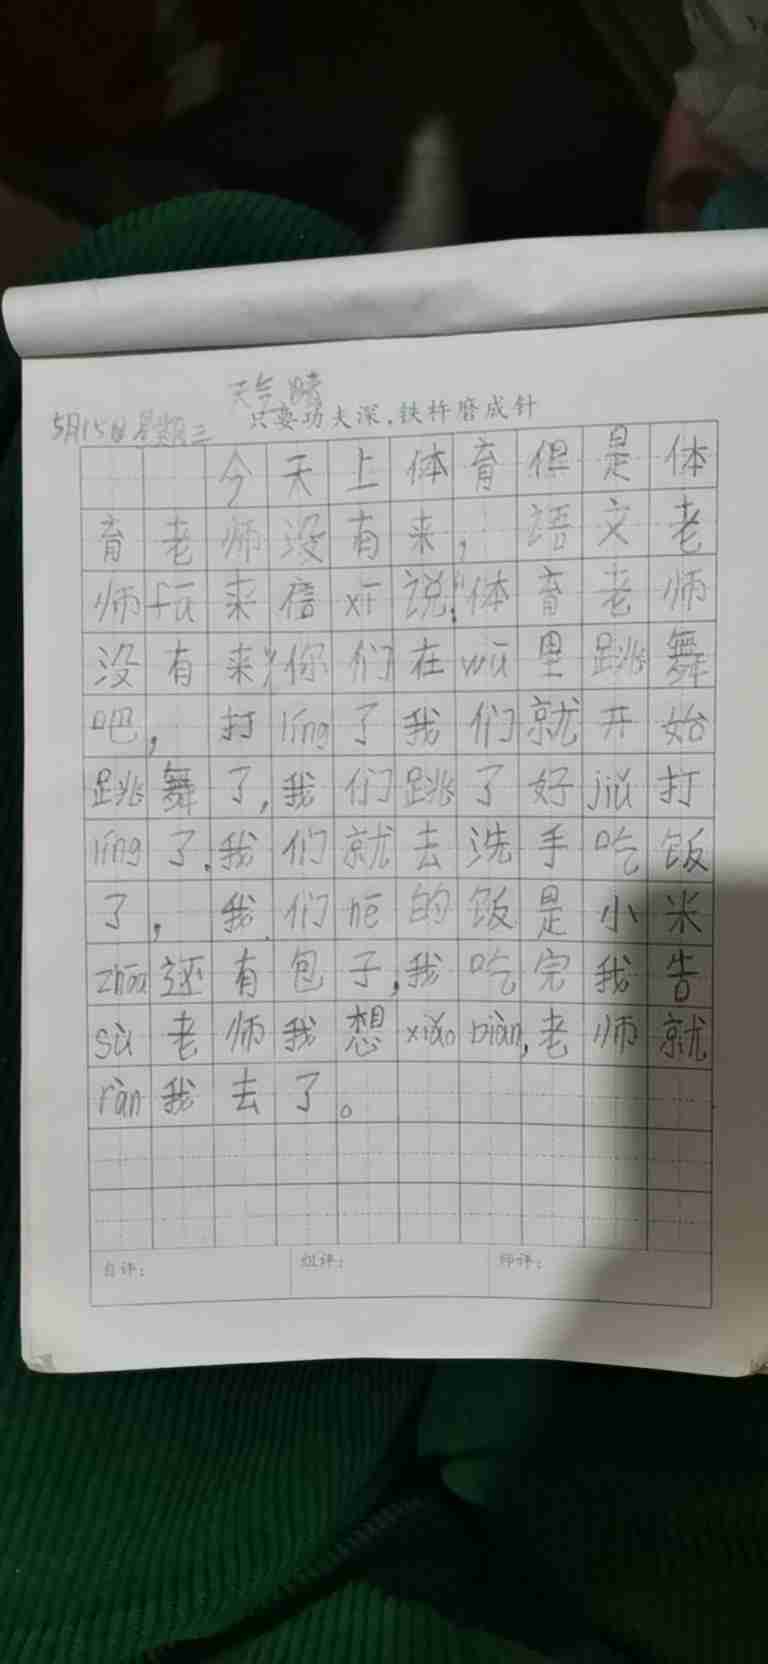 天气 晴
只要功夫深,铁杵磨成针
5月15日星期三
今天上体育但是体
育老师没有来，语文老
师fā来信xī说:“体育老师
没有来”你们在wū里跳舞
吧，打líng了我们就开始
跳舞了,我们跳了好jiǔ打
líng了.我们就去洗手吃饭
了，我们hē的饭是小米
zhōu还有包子,我吃完我告
sù老师我想xiǎo biàn,老师就
ràn我去了。
自评:
组评:
师评: